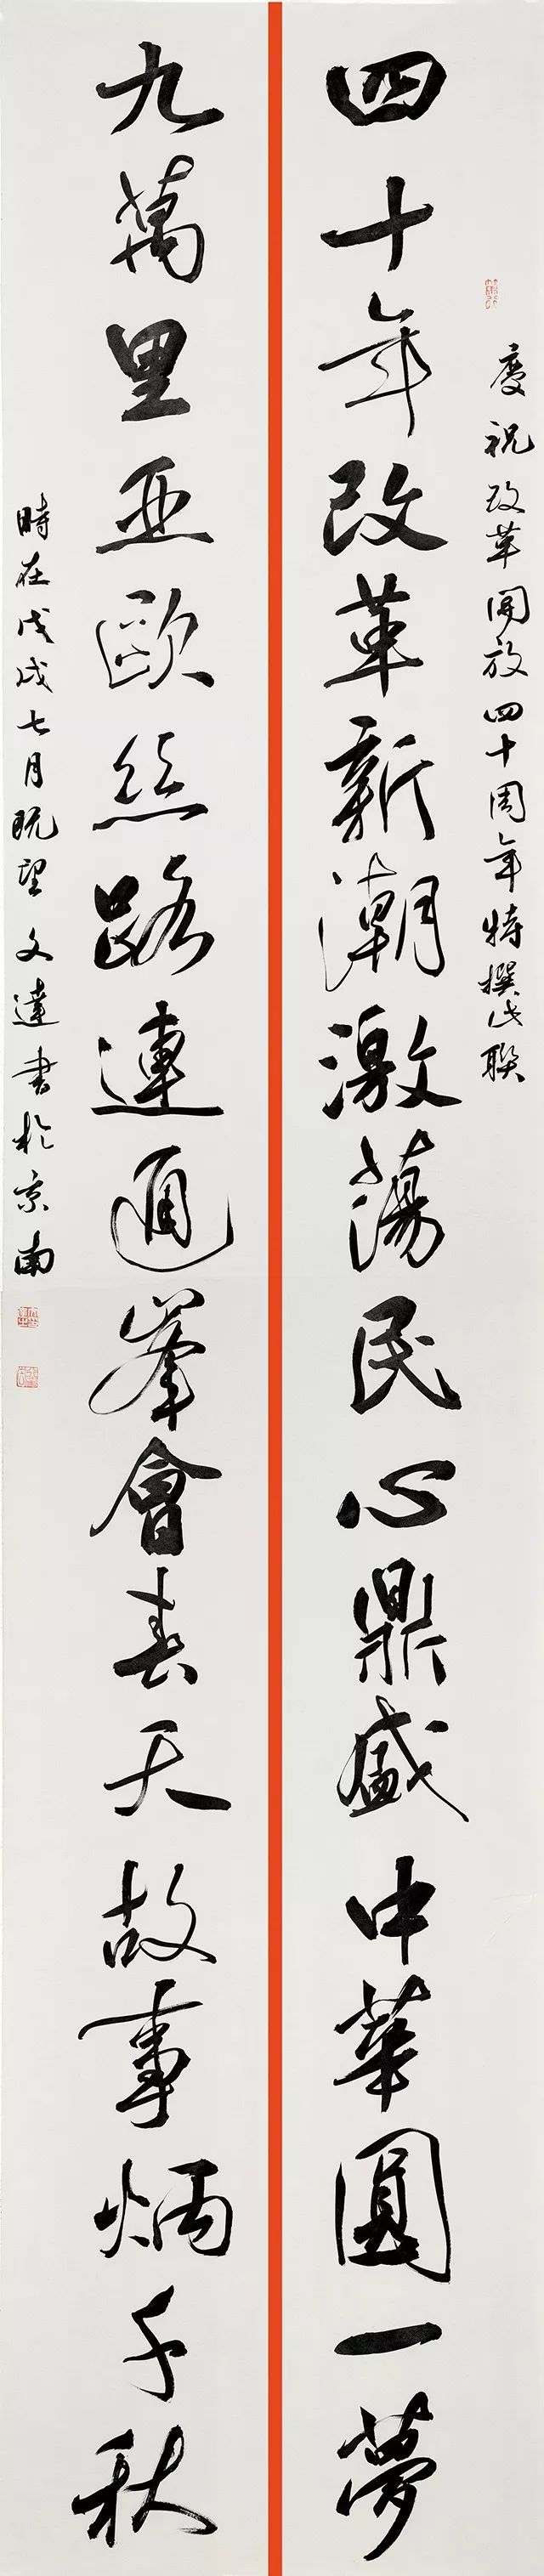 慶祝改革開放四十周年特撰此聯
四十年改革新潮激蕩民心鼎盛中華圓一夢
九萬里亚歐丝路連通峯會春天故事炳千秋
時在戊戌七月既望文達書於京南